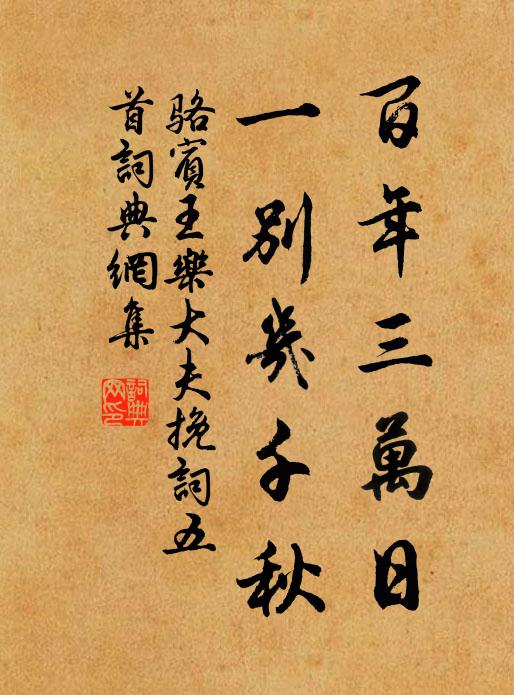 百年三萬日
一别幾千秋
駱賓王樂大夫挽詞五
首詞典網集
詞典
网印